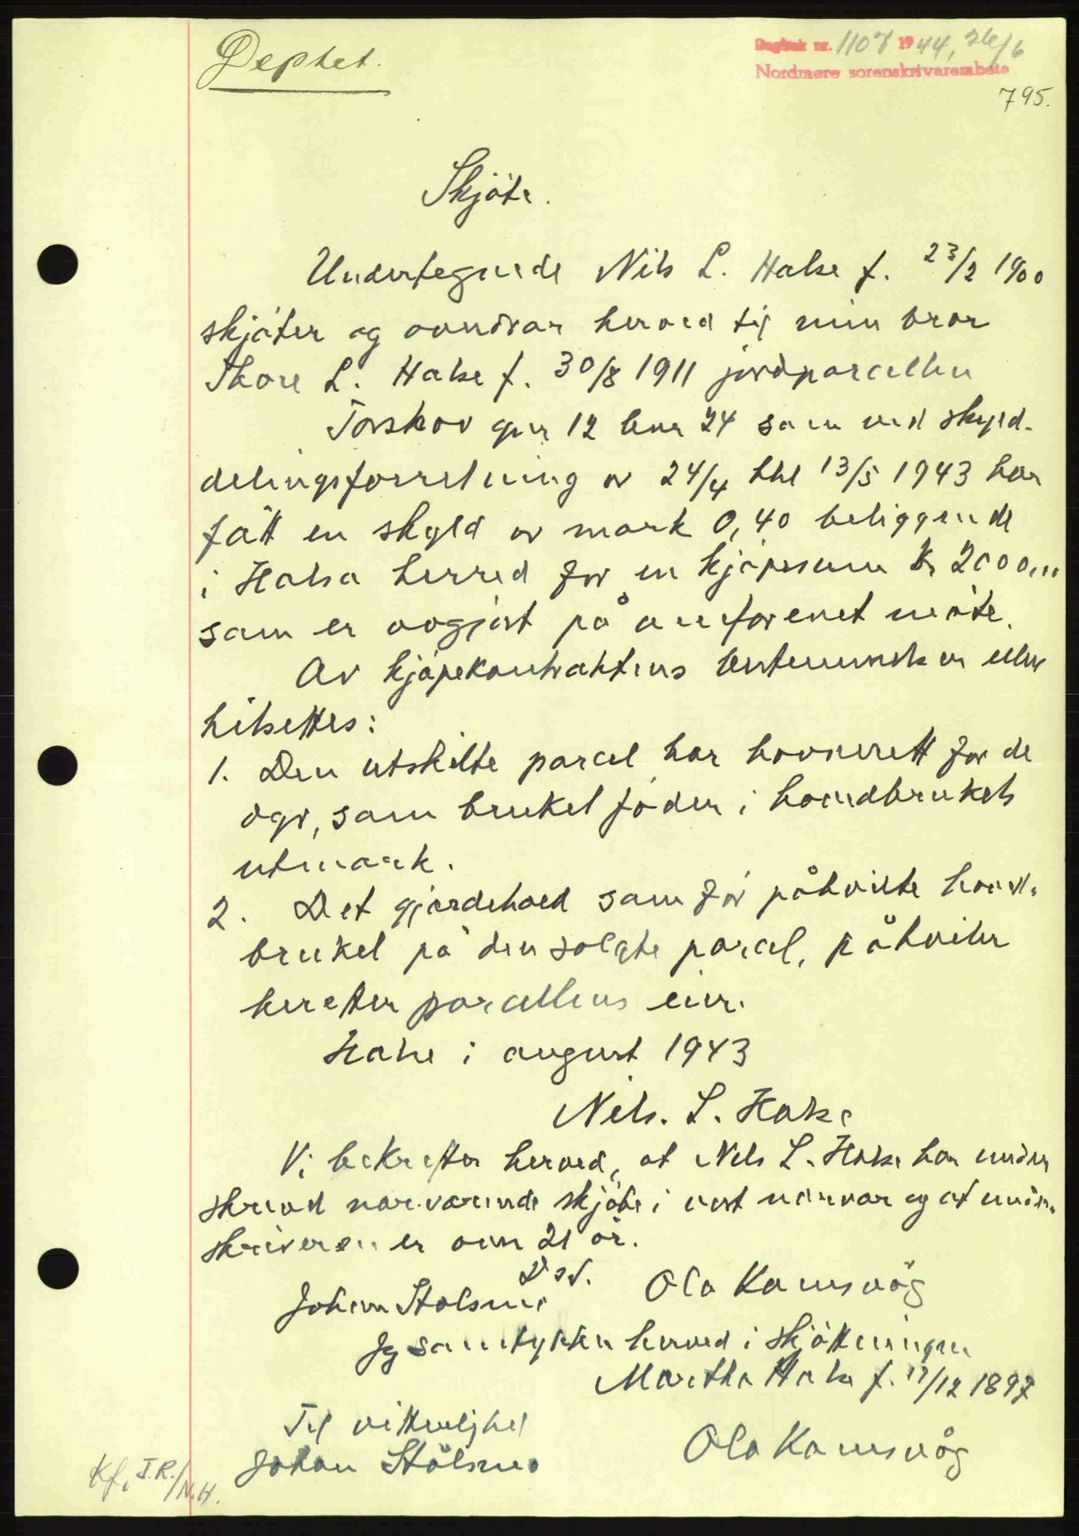 Deptet.
Dagbok nr. 1107 1944, 26/6
Nordmøre sorenskrivarembete
795.
Skjöte.
Undertegnede Nils L. Halse f. 23/2 1900
skjöter og overdrar herved til min bror
Thore L. Halse f. 30/8 1911 jordparcellen
Torskov gnr 12 bnr 24 som ved skyld-
delingsforretning av 24/4 thl 13/5 1943 har
fått en skyld av mark 0,40 beliggende
i Halsa herred for en kjöpesum kr 2000,..
som er avgjort på omforenet måte.
Av kjöpekontraktens bestemmelser
hitsettes:
1. Den utskilte parcel har havnerett for de
dyr, som bruket föder i hovedbrukets
utmark.
2. Det gjerdehold som för påhvilte hoved-
bruket på den solgte parcel, påhviler
heretter parcellens eier.
Halse i august 1943
Nils. L. Halse
Vi bekrefter herved, at Nils L. Halse har under
skrevet nærværende skjöte i vort nærvær og at under-
skriveren er over 21 år.
D.s.s.
Johan Stölsmo Ola Kamsvåg
Jg samtykker herved i skjöttningen
Martha Halse f. 17/12 1897
Til vitterlighet
Johan Stölsmo Ola Kamsvåg
Kf. I.R./N.H.